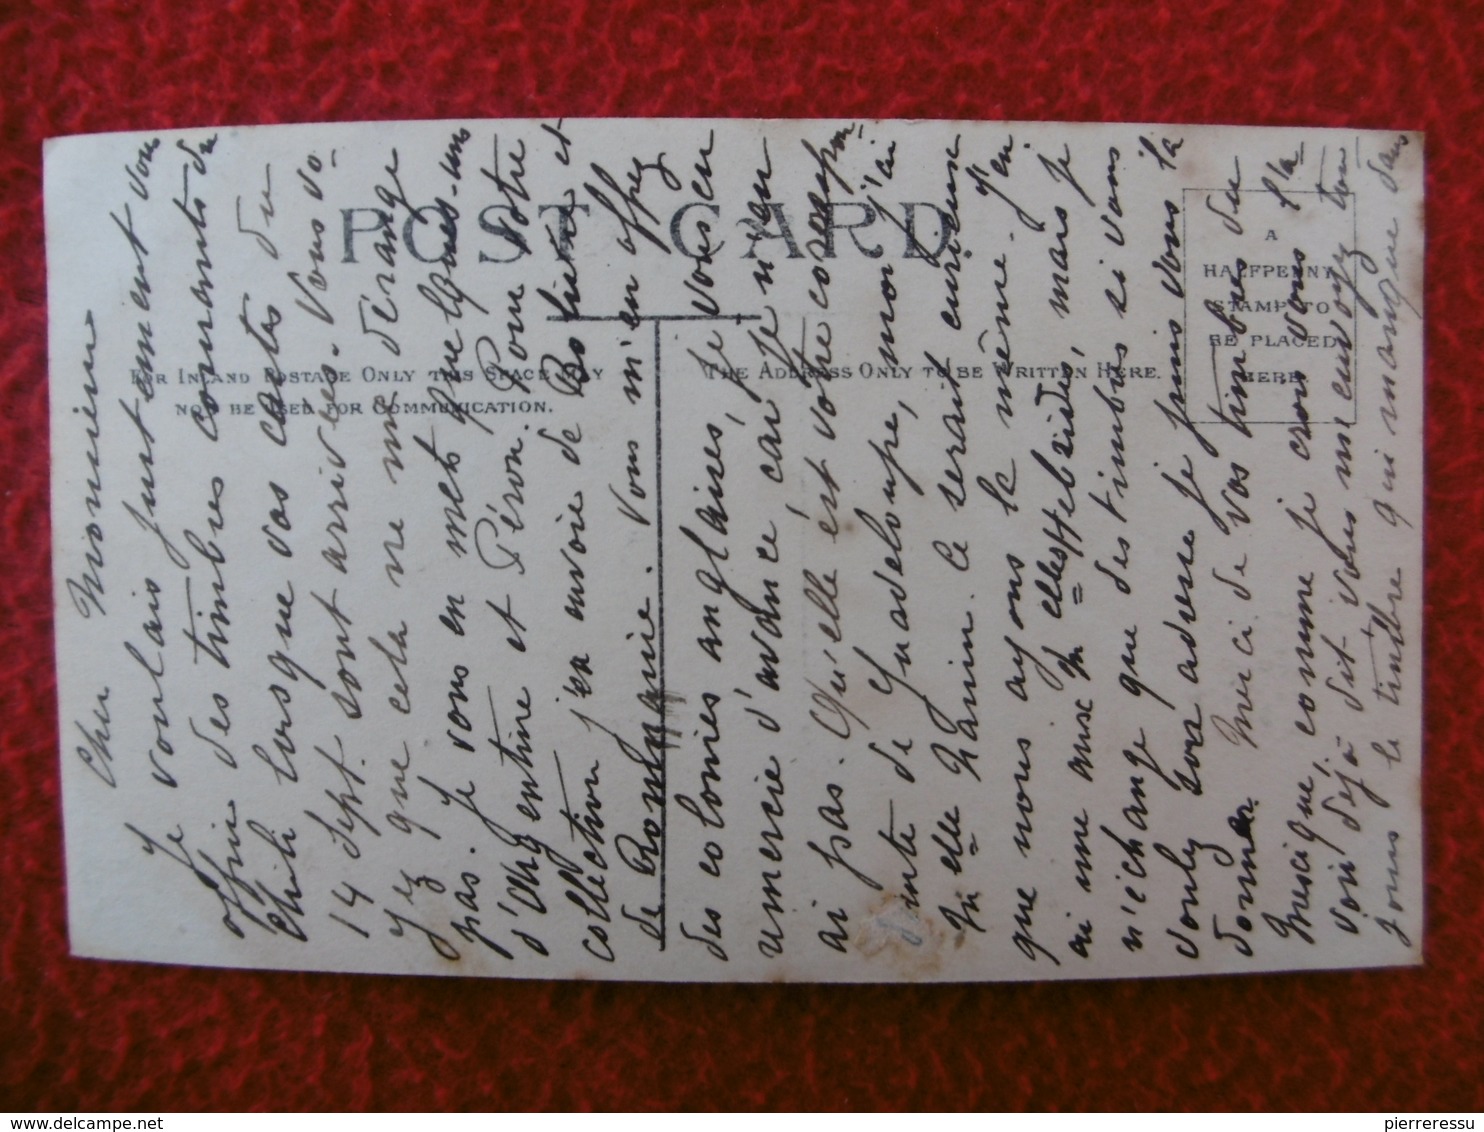 POST CARD
FOR INLAND POSTAGE ONLY THIS SPACE MAY
NOT BE USED FOR COMMUNICATION.
THE ADDRESS ONLY TO BE WRITTEN HERE.
A
HALFPENNY
STAMP TO
BE PLACED
HERE
Cher Monsieur
Je voulais justement vous
offrir des timbres courants du
Chili lorsque vos cartes du
14 Sept. sont arrivées. Vous vo-
yez que cela ne me dérange
pas. Je vous en mets quelques-uns
d'Argentine et Pérou. Pour votre
collection j'en envoie de Bolivie et
de Roumanie. Vous m'en offrez
des colonies anglaises, je vous en
remercie d'avance car je n'en
ai pas. Qu'elle est votre correspon-
dante de Guadeloupe, moi j'ai
Mlle Hanin. Ce serait curieux
que nous ayons la même. J'en
ai une aux Hébrides, mais je
n'échange que des timbres si vous
voulez son adresse je puis vous la
donner. Merci de vos timbres du
Mexique, comme je crois vous l'a-
voir déjà dit vous me envoyez tou-
jours le timbre qui manque dans
pierreressu